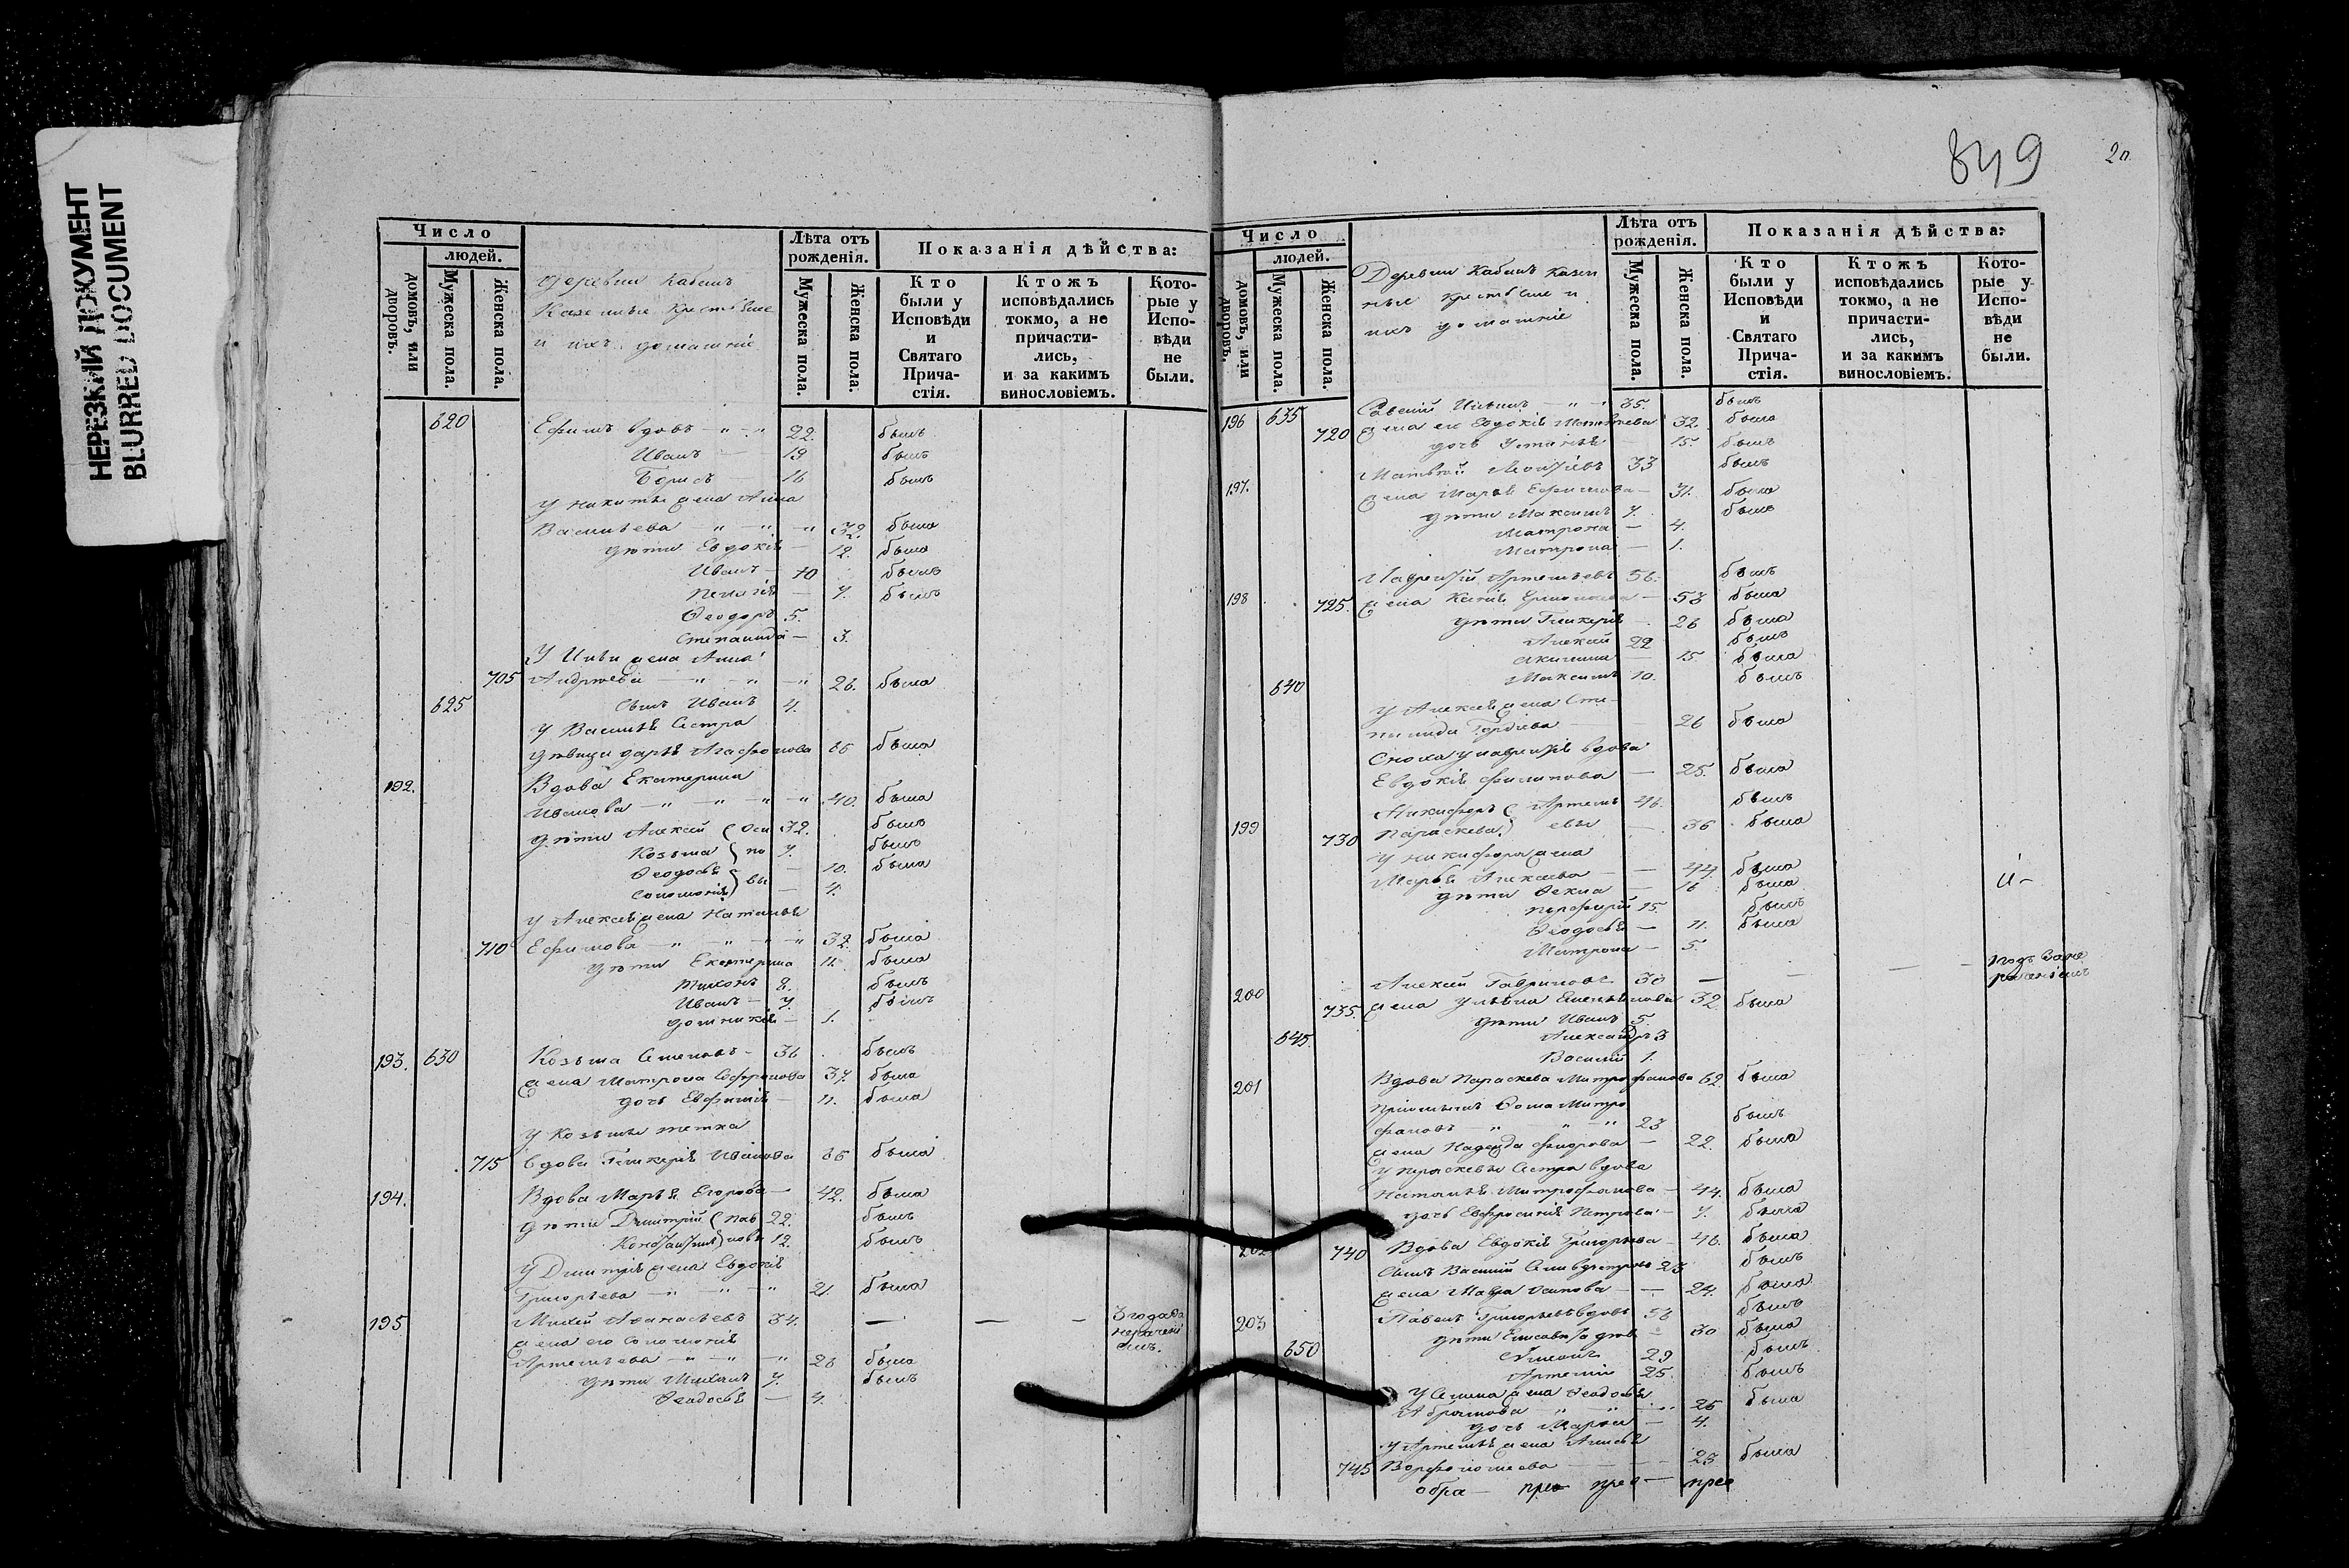 НЕРЕЗКИЙ ДОКУМЕНТ
BLURRED DOCUMENT
Число
людей.
домовъ, или дворовъ.
Мужеска пола.
Женска пола.
деревни Кабан
Казенные Крестьяне
и ихъ домашніе
Лѣта отъ рожденія.
Мужеска пола.
Женска пола.
Показанія дѣйства:
Кто были у Исповѣди и Святаго Причастія.
Ктожъ исповѣдались токмо, а не причастились, и за какимъ винословіемъ.
Которые у Исповѣди не были.
620 Ефимъ вдовъ 22. былъ
Иванъ 19 былъ
Борисъ 16 былъ
У Никиты жена Анна
Васильева 32. была
дѣти Евдокія 12. была
Иванъ 10 былъ
Пелагія 7. была
Ѳеодоръ 5.
Степанида 3.
У жена Анна
705 Андреева 26. была
625 Сынъ Иванъ 4.
У Василья Сестра
дѣвица Дарья Агафонова была
192. Вдова Екатерина
Иванова 40. была
дѣти Алексей (Оси 32. былъ
Козьма по 7. былъ
Ѳеодосья 10. была
Соломонія) вы 4.
У Алексея жена Наталья
710 Ефимова 32. была
дѣти Екатерина 11. была
Тихонъ 8. былъ
Иванъ 7. былъ
Домникія 1.
193. 630 Козьма Семеновъ 36 былъ
жена Матрона Софронова 37. была
дочь Евфимія 11. была
У Козьмы тетка
715 вдова Гликерія Иванова была
194. Вдова Марья Егорова 42. была
дѣти Дмитрій (Пав 22. былъ
ловы 12. былъ
У Дмитрія жена Евдокія
Григорьева 21. была
195 Михей Аѳанасьевъ 34.
жена его Соломонія
Артемьева 28 была
дѣти Михаилъ 7. былъ
Ѳеодосья 4.
849
20
Число
людей.
домовъ, или дворовъ.
Мужеска пола.
Женска пола.
Деревни Кабан Казен
ные крестьяне и
ихъ домашніе
Лѣта отъ рожденія.
Мужеска пола.
Женска пола.
Показанія дѣйства:
Кто были у Исповѣди и Святаго Причастія.
Ктожъ исповѣдались токмо, а не причастились, и за какимъ винословіемъ.
Которые у Исповѣди не были.
196 635 35. былъ
720 жена его Евдокія Матвѣева 32. была
дочь Устинья 15. была
197. Матвѣй 33 былъ
жена Марья Ефимова 31. была
дѣти Максимъ 7. былъ
Матрона 4.
Матрона 1.
198 Лаврентій Артемьевъ 56. былъ
725. жена 53 была
дѣти Гликерія 26 была
Алексей 22 былъ
Акилина 15. была
640 Максимъ 10. былъ
У Алексея жена Сте-
панида Гордѣева 26 была
Сноха у Лаврентія вдова
Евдокія Филипова 25. была
199 Никифоръ (Артемь 46. былъ
730 Параскева) евы 36 была
У Никифора жена
Марья Алексеева 44 была
дѣти Ѳекла 16 была
Порфирій 15. былъ
Ѳеодосья 11. была
Матрона 5.
200 Алексей Гавриловъ 30
735. жена Ульяна Емельянова 32 была
дѣти Иванъ 5
645. Александръ 3
Василій 1.
201 Вдова Параскева Митрофанова 62. была
Пріемышъ Ѳома Митро
фановъ 23 былъ
жена Надежда Ѳеодорова 22. была
У Параскевы Сестра вдова
Наталья Митрофанова 44. была
дочь Евфросинія Петрова 7. была
202 740 Вдова Евдокія Григорьева 46. была
Сынъ Василій 23 былъ
жена Мавра Осипова 24. была
203 Павелъ Григорьевъ вдовъ 58 былъ
дѣти Елисавета дѣв 30 была
650 Симонъ 29 былъ
Артемій 25. былъ
У Симона жена Ѳеодосья
Абрамова 26 была
дочь Марѳа 4.
У Артемья жена Анисья
745 Варфоломеева 23 была